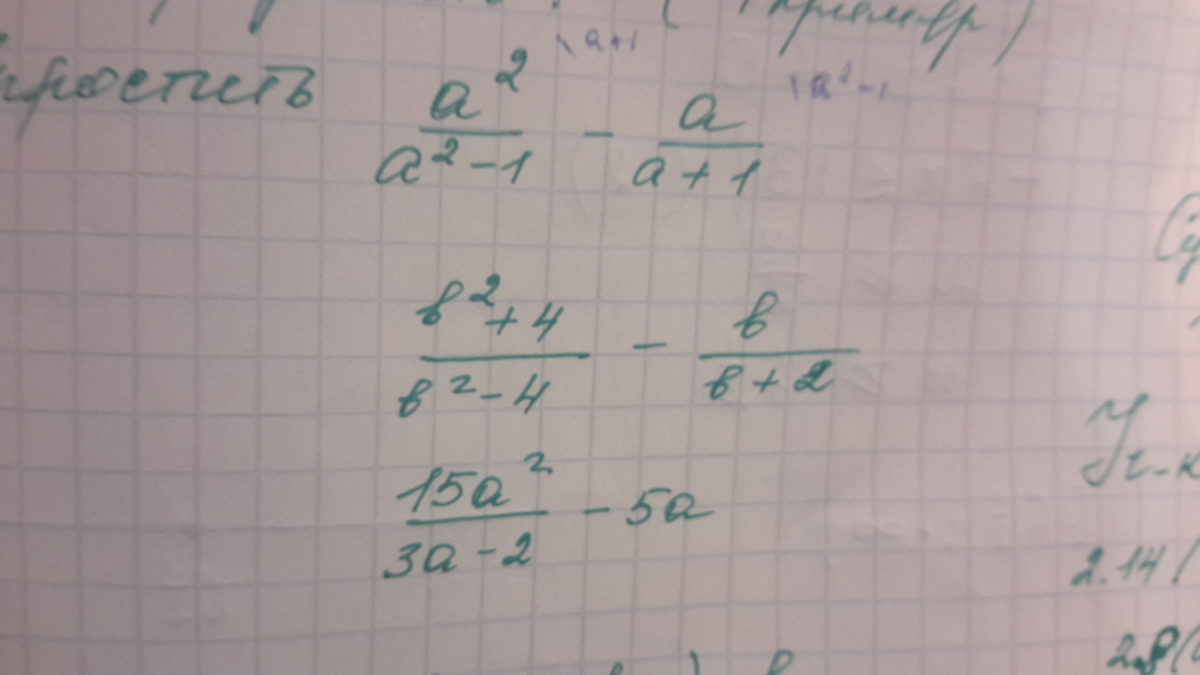 (1 пример)
упростить a²/(a²-1) \a+1 - a/(a+1) \a²-1
(b²+4)/(b²-4) - b/(b+2)
15a²/(3a-2) - 5a
2.14(